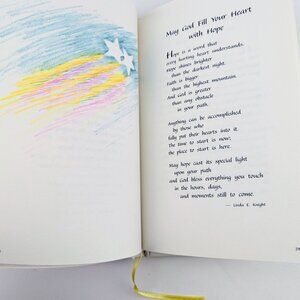 May God Fill Your Heart
with Hope
Hope is a word that
every hurting heart understands.
Hope shines brighter
than the darkest night.
Faith is bigger
than the highest mountain.
And God is greater
than any obstacle
in your path.
Anything can be accomplished
by those who
fully put their hearts into it.
The time to start is now;
the place to start is here.
May hope cast its special light
upon your path
and God bless everything you touch
in the hours, days,
and moments still to come.
— Linda E. Knight